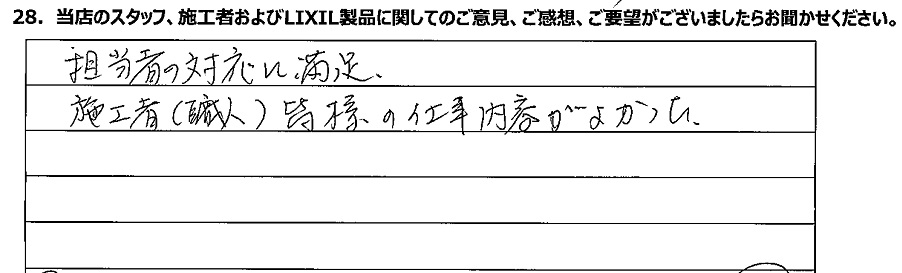 28. 当店のスタッフ、施工者およびLIXIL製品に関してのご意見、ご感想、ご要望がございましたらお聞かせください。
担当者の対応に満足。
施工者(職人)皆様の仕事内容がよかった。